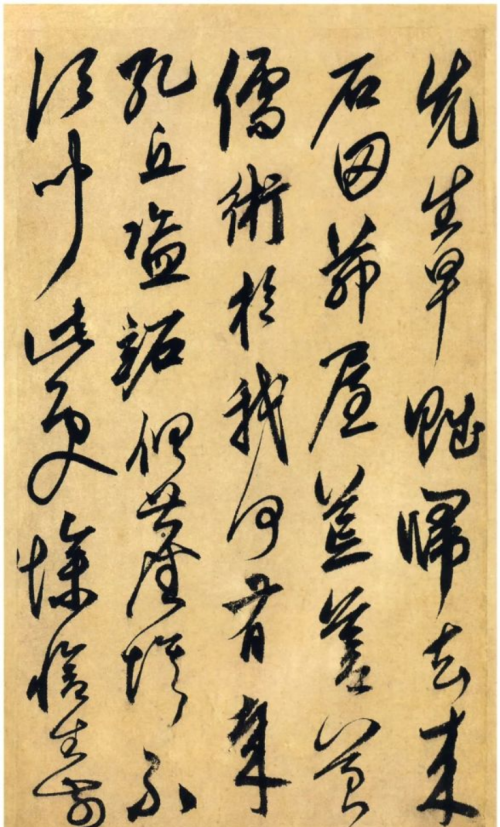 先生早賦歸去来
石田茅屋荒蒼苔
儒術於我何有哉
孔丘盜跖俱塵埃不
須聞此意慘愴生前